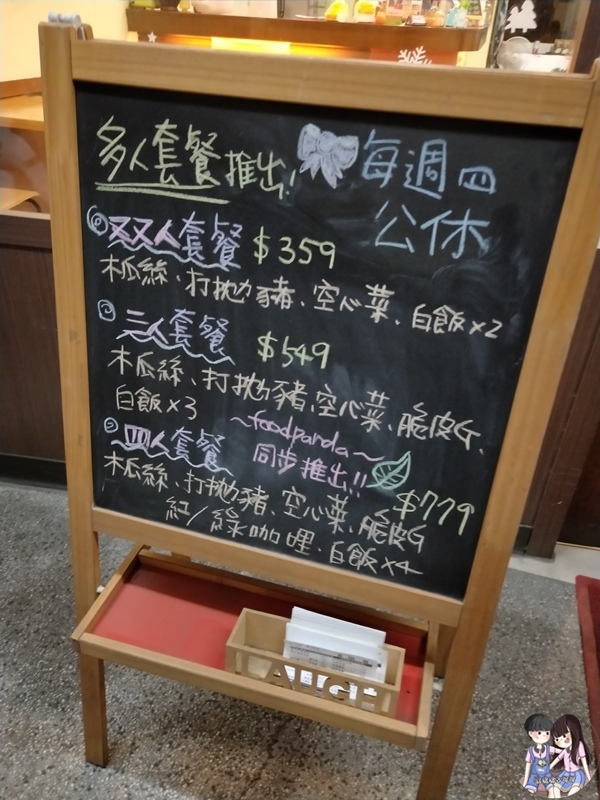 多人套餐推出!
每週四
公休
① 双人套餐 $359
木瓜絲、打拋豬、空心菜、白飯x2
② 三人套餐 $549
木瓜絲、打拋豬、空心菜、脆皮G、
白飯x3
~foodpanda~
同步推出!!
③ 四人套餐
$779
木瓜絲、打拋豬、空心菜、脆皮G
紅/綠咖哩、白飯x4